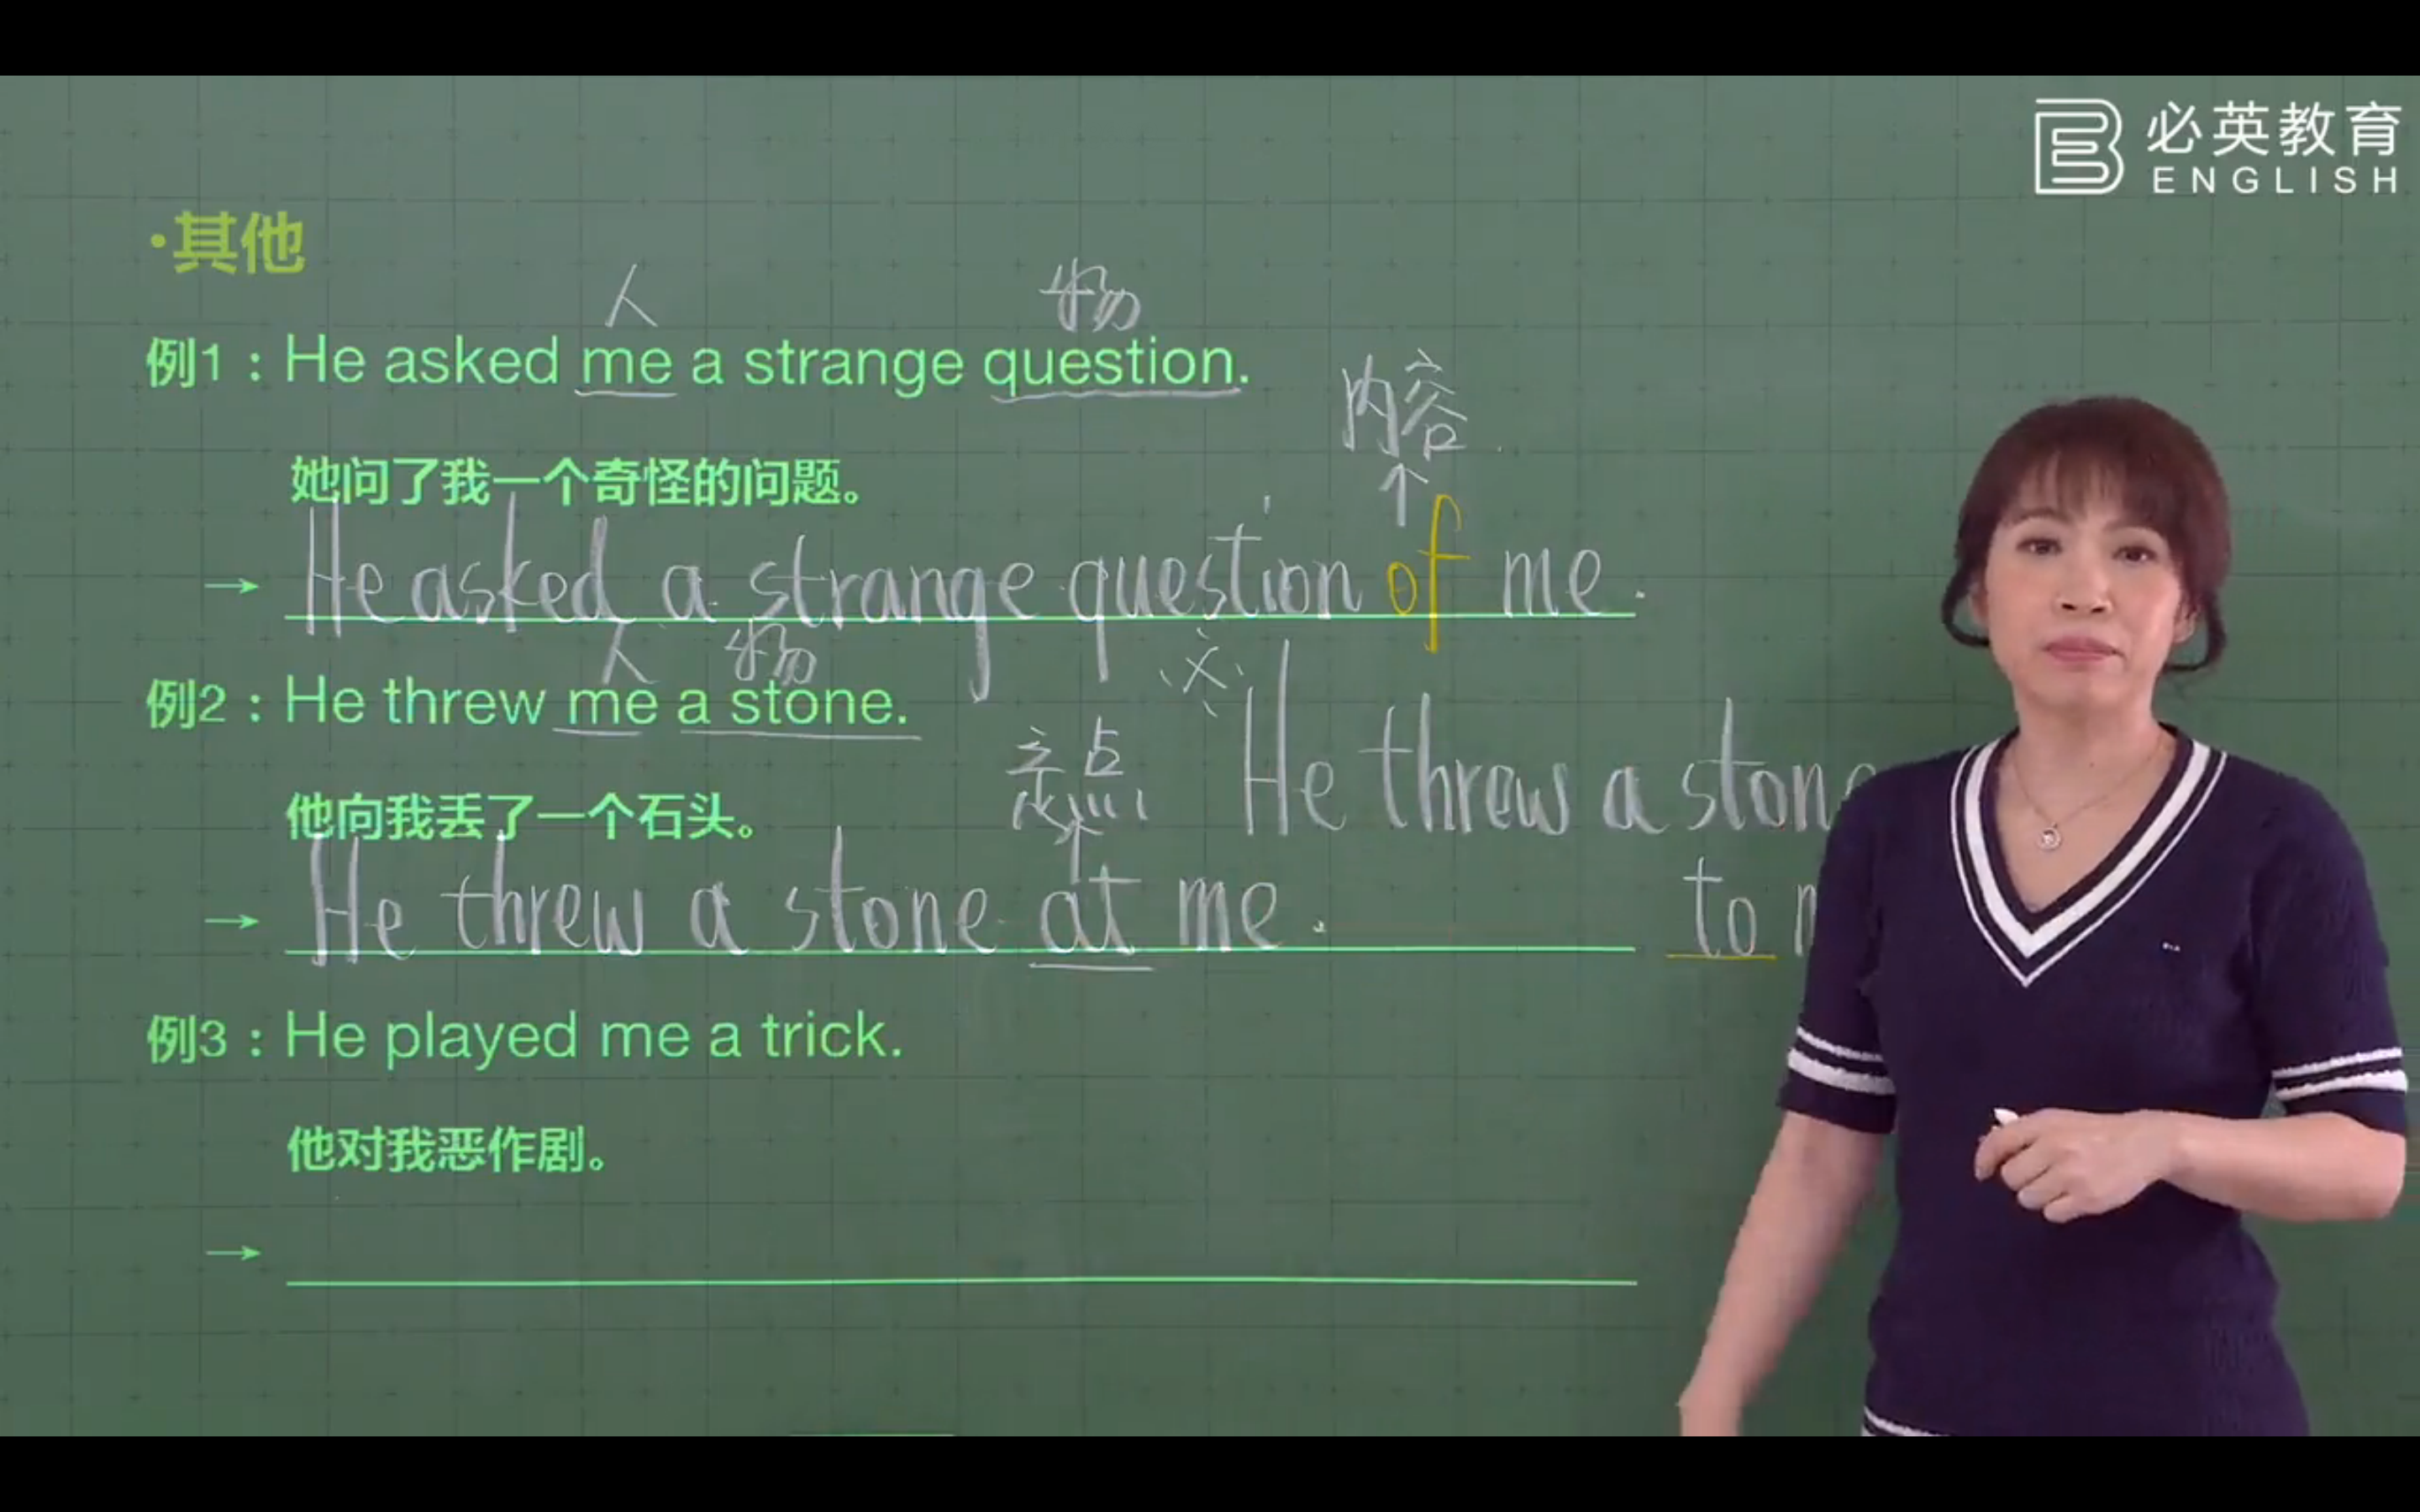 必英教育
ENGLISH
·其他
人 物
例1：He asked me a strange question.
内容
她问了我一个奇怪的问题。
→ He asked a strange question of me.
人 物
例2：He threw me a stone.
He threw a ston
他向我丢了一个石头。
点
to
→ He threw a stone at me.
例3：He played me a trick.
他对我恶作剧。
→